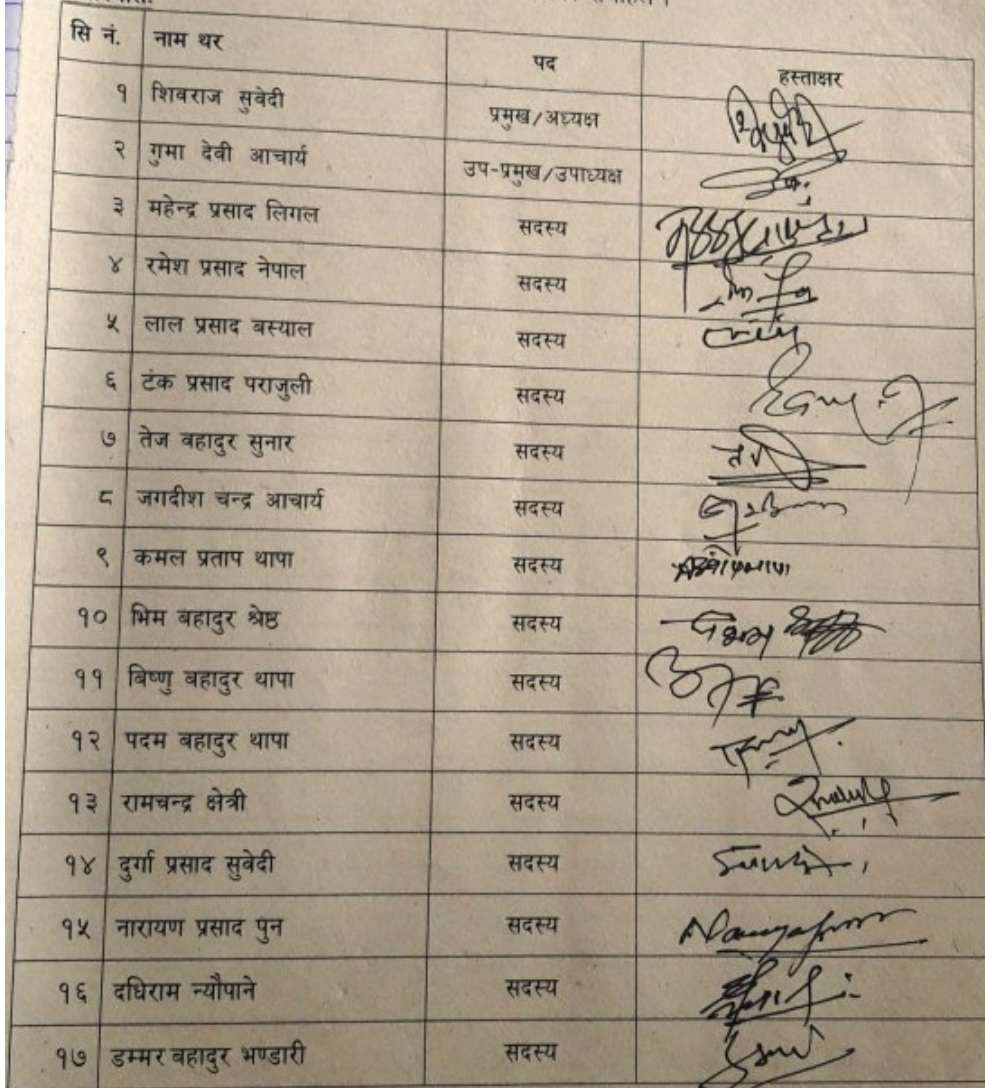 सि नं. नाम थर पद हस्ताक्षर
१ शिवराज सुवेदी प्रमुख/अध्यक्ष
२ गुमा देवी आचार्य उप-प्रमुख/उपाध्यक्ष
३ महेन्द्र प्रसाद लिगल सदस्य
४ रमेश प्रसाद नेपाल सदस्य
५ लाल प्रसाद बस्याल सदस्य
६ टंक प्रसाद पराजुली सदस्य
७ तेज वहादुर सुनार सदस्य
८ जगदीश चन्द्र आचार्य सदस्य
९ कमल प्रताप थापा सदस्य
१० भिम बहादुर श्रेष्ठ सदस्य
११ बिष्णु बहादुर थापा सदस्य
१२ पदम बहादुर थापा सदस्य
१३ रामचन्द्र क्षेत्री सदस्य
१४ दुर्गा प्रसाद सुवेदी सदस्य
१५ नारायण प्रसाद पुन सदस्य
१६ दधिराम न्यौपाने सदस्य
१७ डम्मर बहादुर भण्डारी सदस्य